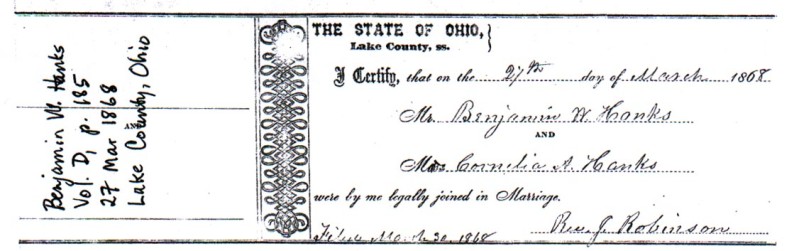 Benjamin W. Hanks
Vol. D, p. 185
AND
27 Mar 1868
Lake County, Ohio
THE STATE OF OHIO,
Lake County, ss.
I Certify, that on the 27th day of March 1868
Mr. Benjamin W. Hanks
AND
Mrs Cornelia A. Hanks
were by me legally joined in Marriage.
Filed March 30, 1868 Rev. J. Robinson